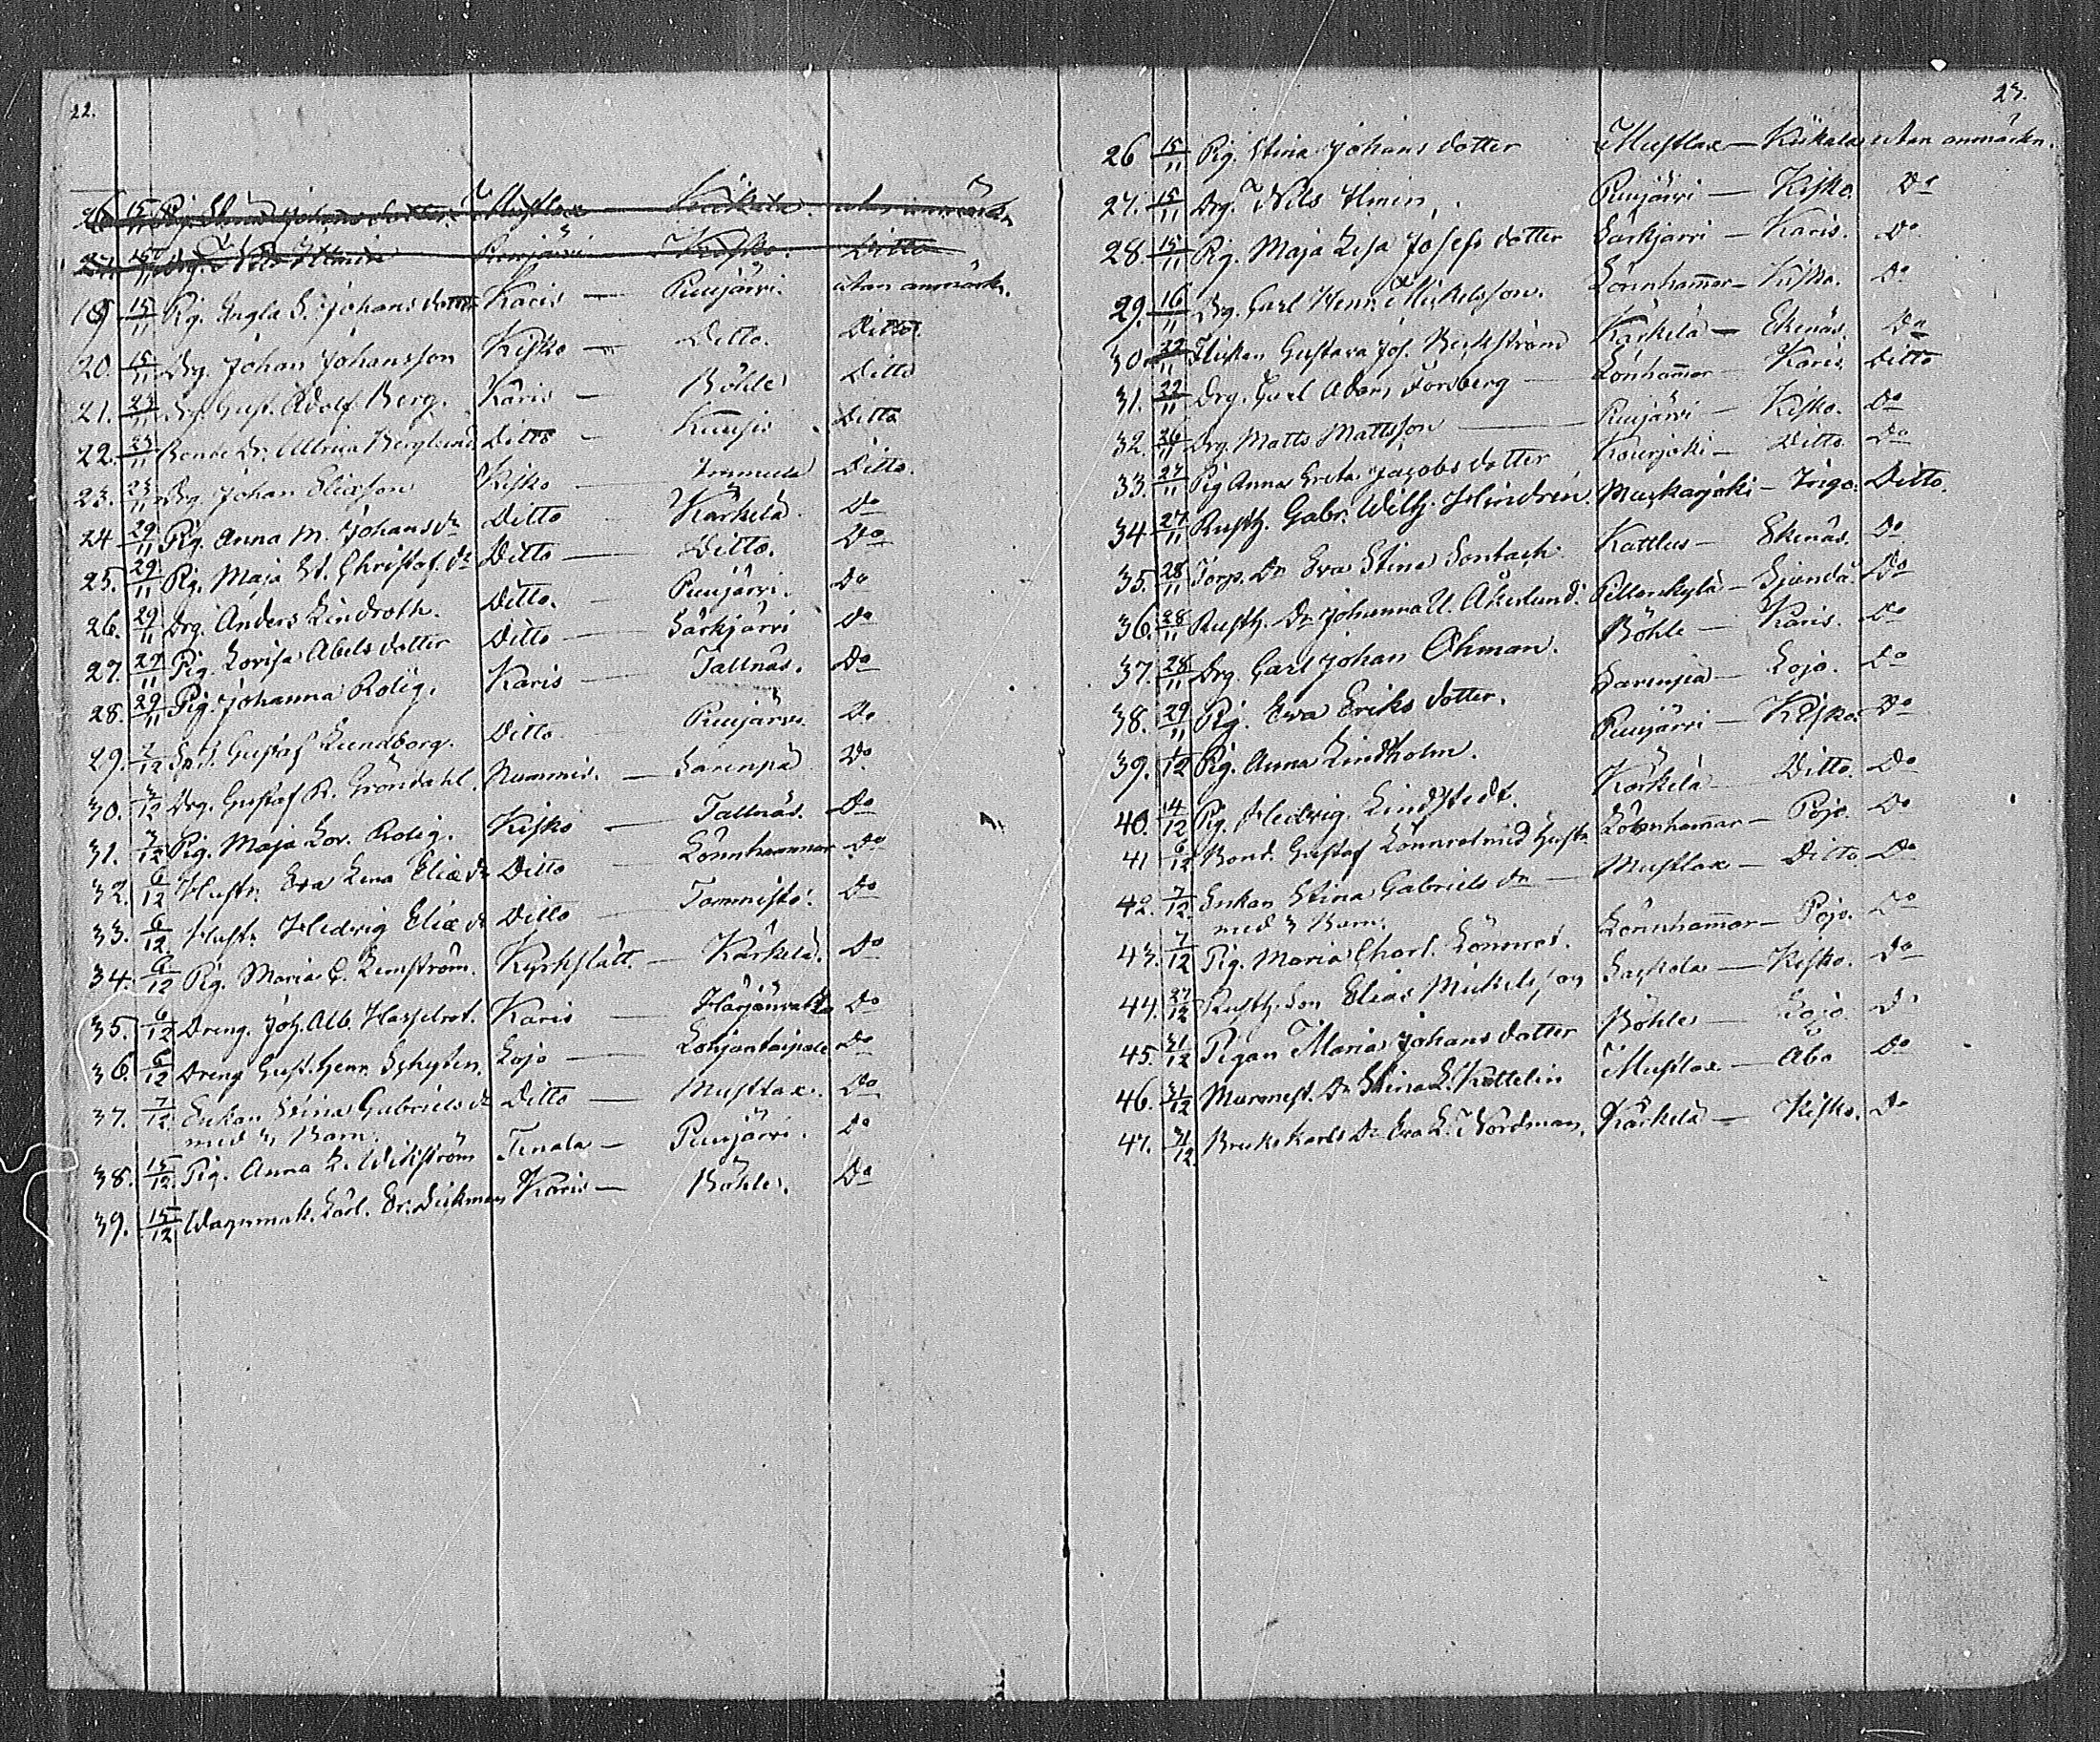 22.
26 15/11 Pig. Stina Johans dotter. Mustlax Kiikala. utan anmärkn.
27. 15/11 Drg. Nils Ilmin Puujärvi Kisko. Ditto
19 15/11 Pig. Ingla S. Johans dotter Karis — Puujärvi. utan anmärkn.
20. 15/11 Drg. Johan Johansson Kisko — Ditto. Ditto.
21. 23/11 Drg. Gust. Adolf Berg. Karis — Böhle Ditto
22. 23/11 Bonde Dr. Ulrica Berglund Ditto — Kuusio. Ditto
23. 23/11 Drg. Johan Eliæson Kisko — Ditto.
24 29/11 Pig. Anna M. Johansdr Ditto — Kärkelä. Do
25. 29/11 Pig. Maja St. Christof. dr Ditto — Ditto. Do
26. 29/11 Drg. Anders Lindroth. Ditto. — Puujärvi. Do
27. 29/11 Pig. Lovisa Abels dotter Ditto — Särkjärvi Do
28. 29/11 Pig. Johanna Rolig. Karis — Tallnäs. Do
29. 2/12 Gustaf Lundborg. Ditto — Puujärvi. Do
30. 3/12 Drg. Gustaf R. Gröndahl. Nummis. — Sarenpä Do
31. 7/12 Pig. Maja Lov. Rolig. Kisko — Tallnäs. Do
32. 6/12 Hustr. Eva Lena Eliæ dr Ditto — Lönnhammar Do
33. 6/12 Hustr. Hedvig Eliæ dr Ditto — Tammisto. Do
34. 6/12 Pig. Maria C. Lemström. Kyrkslätt. — Kärkelä. Do
35. 6/12 Dreng. Joh. Alb. Hasselrot. Karis — Harjanvatto Do
36. 6/12 Dreng Gust. Henr. Schyten. Lojo — Lohjantaipale Do
37. 7/12 Enkan Stina Gabriels dr Ditto — Mustlax. Do
med 3 Barn.
38. 15/12 Pig. Anna L. Wikström Tenala — Puujärvi. Do
39. 15/12 Wagnmak. Carl. Er. Dickman Karis — Böhle. Do
23.
26 15/11 Pig. Stina Johans dotter Mustlax — Kiikala utan anmärkn.
27. 15/11 Drg. Nils Ilmin. Puujärvi — Kisko. Do
28. 15/11 Pig. Maja Lisa Josefs dotter Särkjärvi — Karis. Do
29. 16/11 Drg. Carl Henr. Mickelsson. Lönnhammar — Kisko. Do
30. 22/11 Hustrun Gustava Jos. Beckström Kärkelä — Ekenäs. Do
31. 22/11 Drg. Carl Adam Forsberg — Lönhammar — Karis. Ditto
32. 26/11 Drg. Matts Mattsson — Puujärvi — Kisko. Do
33. 27/11 Pig Anna Greta Jacobs dotter Kourjoki — Ditto. Do
34 27/11 Rusth. Gabr. Wilh. Hindrén. Muskarjoki — Ditto.
35. 28/11 Torp. Dr Eva Stina Kattlus — Ekenäs. Do
36. 28/11 Rusth. Dr Johanna U. Åkerlund. Pellonkylä — Sjundå. Do
37. 28/11 Drg. Carl Johan Öhman. Böhle — Karis. Do
38. 29/11 Pig. Eva Eriks dotter. Sarenpä — Lojo. Do
39. 1/12 Pig. Anna Lindholm. Puujärvi — Kisko. Do
40. 4/12 Pig. Hedvig Lindstedt. Kärkelä — Ditto. Do
41 6/12 Bond. Gustaf Lönnrot med Hustr. Lönnhammar — Pojo. Do
42. 7/12 Enkan Stina Gabriels dr — Mustlax — Ditto Do
med 3 Barn.
43. 7/12 Pig. Maria Charl. Lönnrot. Lönnhammar — Pojo. Do
44. 27/12 Rusth. Son Elias Mickelsson Saskola — Kisko. Do
45. 31/12 Pigan Maria Johans dotter Böhle — Lojo. Do
46. 31/12 Murmest. Dr Stina L. Kettelin Mustlax — Abo Do
47. 31/12 Brukskarls Dr Eva L. Nordman. Kärkelä — Kisko. Do